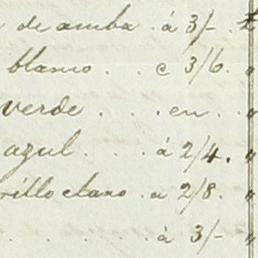 de arriba . á 3/-. £
blanco . . c 3/6. "
verde . . . en . . "
azul . . . . á 2/4. "
rillo claro . a 2/8. "
. . . . . á 3/- "